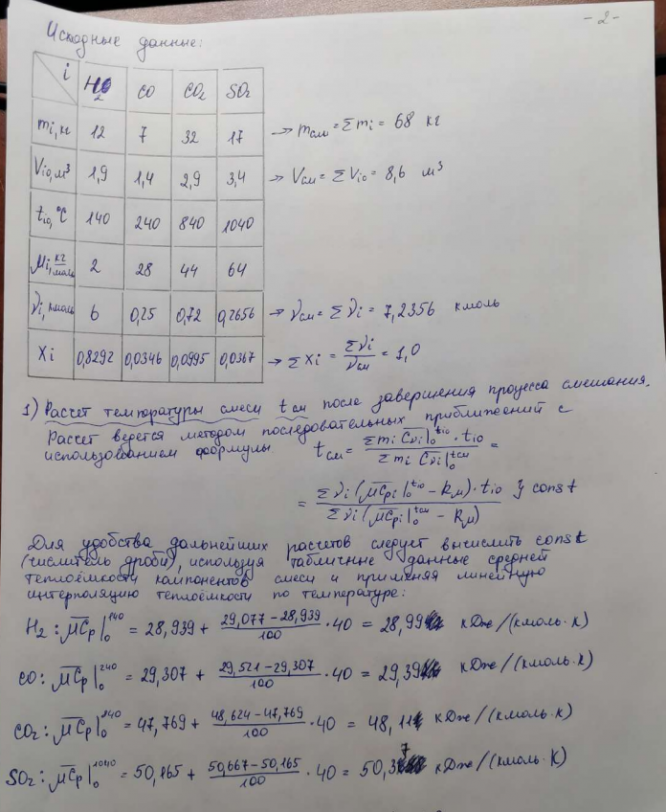 - 2 -
Исходные данные:
i H2 CO CO2 SO2
mi, кг 12 7 32 17 → mсм = Σmi = 68 кг
Vi0, м³ 1,9 1,4 2,9 3,4 → Vсм = ΣVi0 = 8,6 м³
ti0, °C 140 240 840 1040
μi, кг/моль 2 28 44 64
νi, кмоль 6 0,25 0,72 0,2656 → νсм = Σνi = 7,2356 кмоль
Xi 0,8292 0,0346 0,0995 0,0367 → ΣXi = Σνi/νсм = 1,0
1) Расчет температуры смеси tсм после завершения процесса смешания.
Расчет ведется методом последовательных приближений с
использованием формулы. tсм = Σmi C̅νi|₀^ti0 · ti0 / Σmi C̅νi|₀^tсм =
= Σνi(μC̅pi|₀^ti0 − Rм) · ti0 / Σνi(μC̅pi|₀^tсм − Rм) } const
Для удобства дальнейших расчетов следует вычислить const
(числитель дроби), используя табличные данные средней
теплоёмкости компонентов смеси и применяя линейную
интерполяцию теплоёмкости по температуре:
H2: μC̅p|₀^140 = 28,939 + (29,077 − 28,939)/100 · 40 = 28,99 кДж/(кмоль·К)
CO: μC̅p|₀^240 = 29,307 + (29,521 − 29,307)/100 · 40 = 29,39 кДж/(кмоль·К)
CO2: μC̅p|₀^840 = 47,769 + (48,624 − 47,769)/100 · 40 = 48,11 кДж/(кмоль·К)
SO2: μC̅p|₀^1040 = 50,165 + (50,667 − 50,165)/100 · 40 = 50,37 кДж/(кмоль·К)